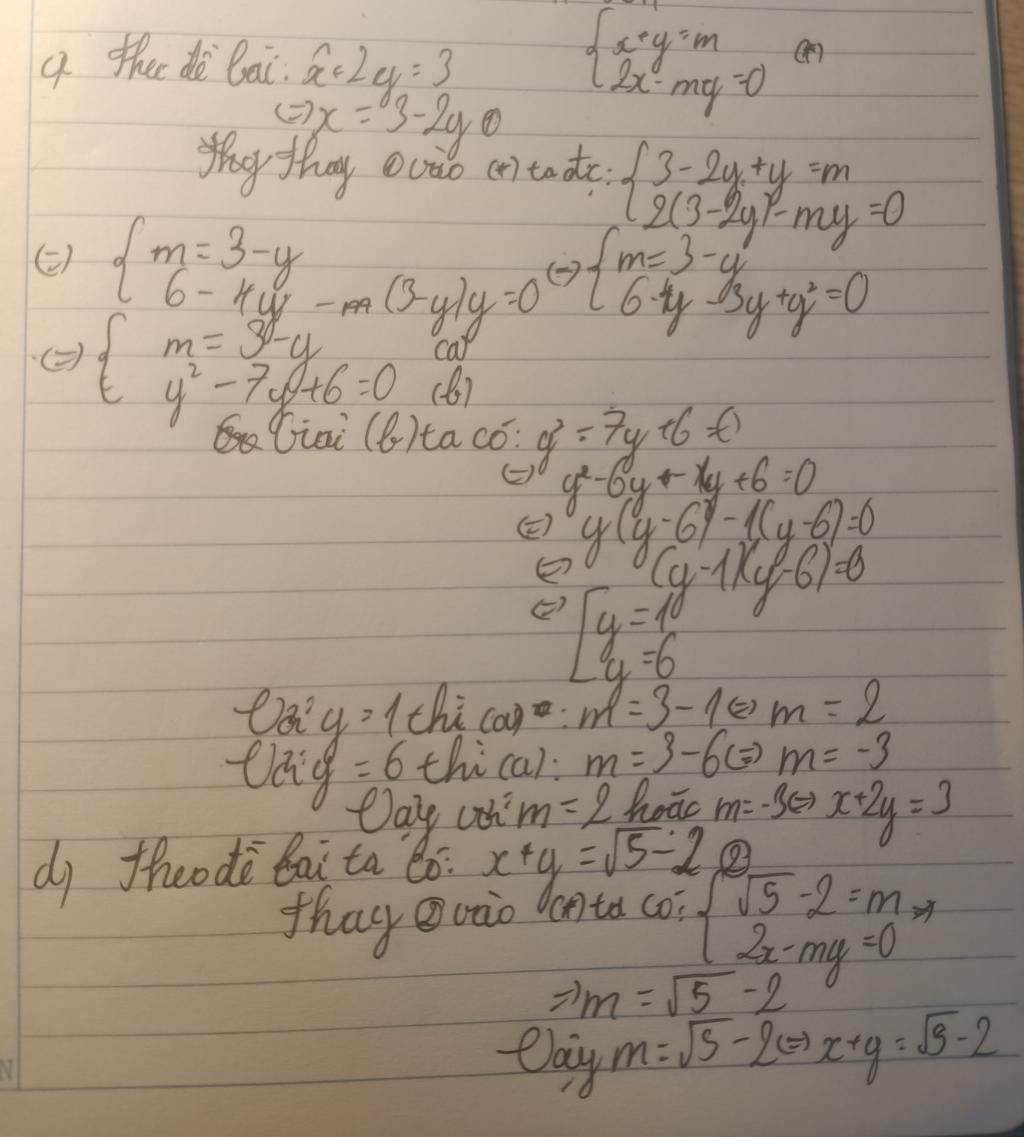 c) Theo đề bài: x+2y=3 { x+y=m (*)
{ 2x-my=0
(=) x = 3-2y ①
Thay ① vào (*) ta đc: { 3-2y+y=m
{ 2(3-2y)-my=0
(=) { m=3-y (=) { m=3-y
{ 6-4y-(3-y)y=0 { 6-4y-3y+y²=0
(=) { m=3-y (a)
{ y²-7y+6=0 (b)
Giải (b) ta có: y²-7y+6=0
(=) y²-6y-1y+6=0
(=) y(y-6)-1(y-6)=0
(=) (y-1)(y-6)=0
(=) [ y=1
[ y=6
Với y=1 thì (a): m=3-1 (=) m=2
Với y=6 thì (a): m=3-6 (=) m=-3
Vậy với m=2 hoặc m=-3 (=) x+2y=3
d) Theo đề bài ta có: x+y=√5-2 ②
Thay ② vào (*) ta có: { √5-2=m
{ 2x-my=0
=) m=√5-2
Vậy m=√5-2 (=) x+y=√5-2